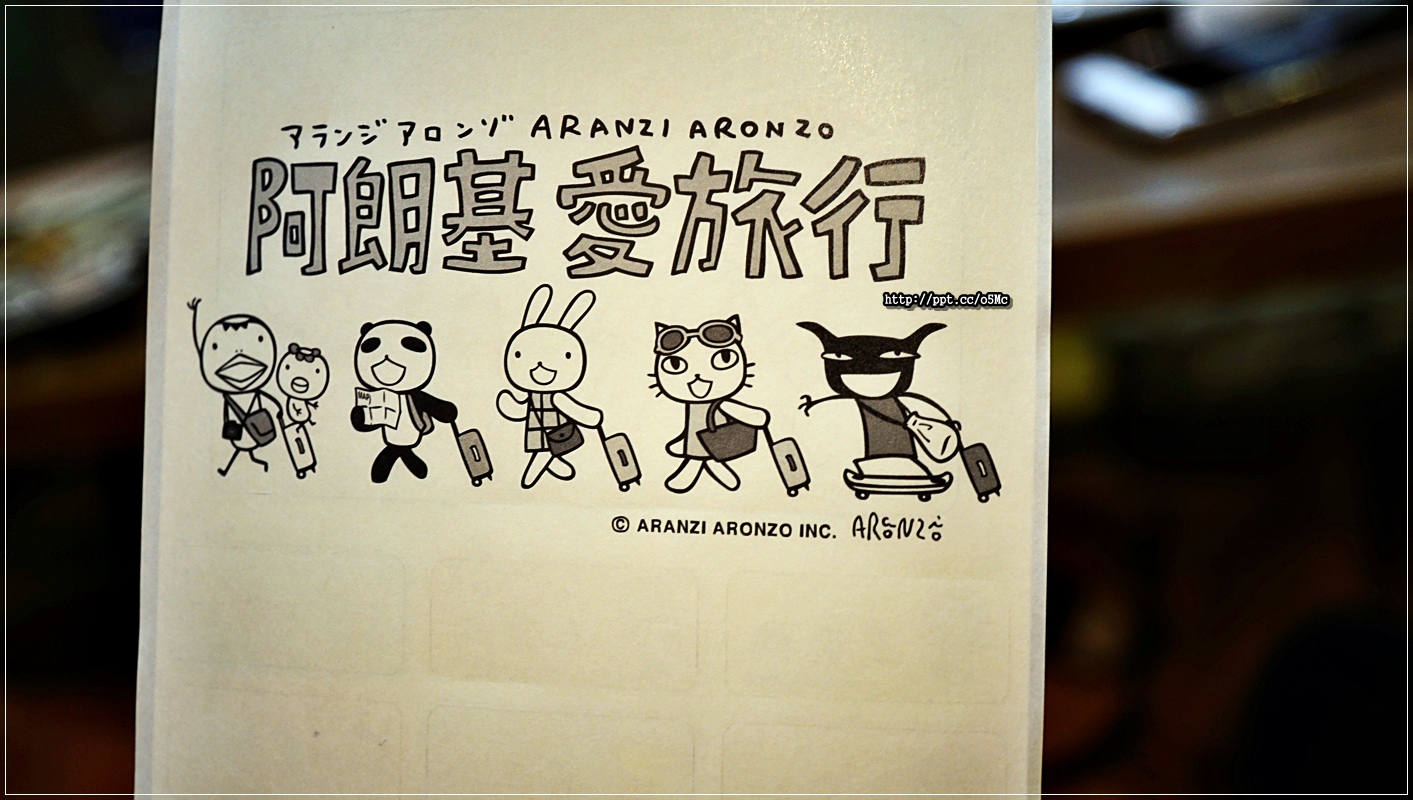 アランジ アロンゾ ARANZI ARONZO
阿朗基 愛旅行
http://ppt.cc/o5Mc
MAP
© ARANZI ARONZO INC. ARONZO